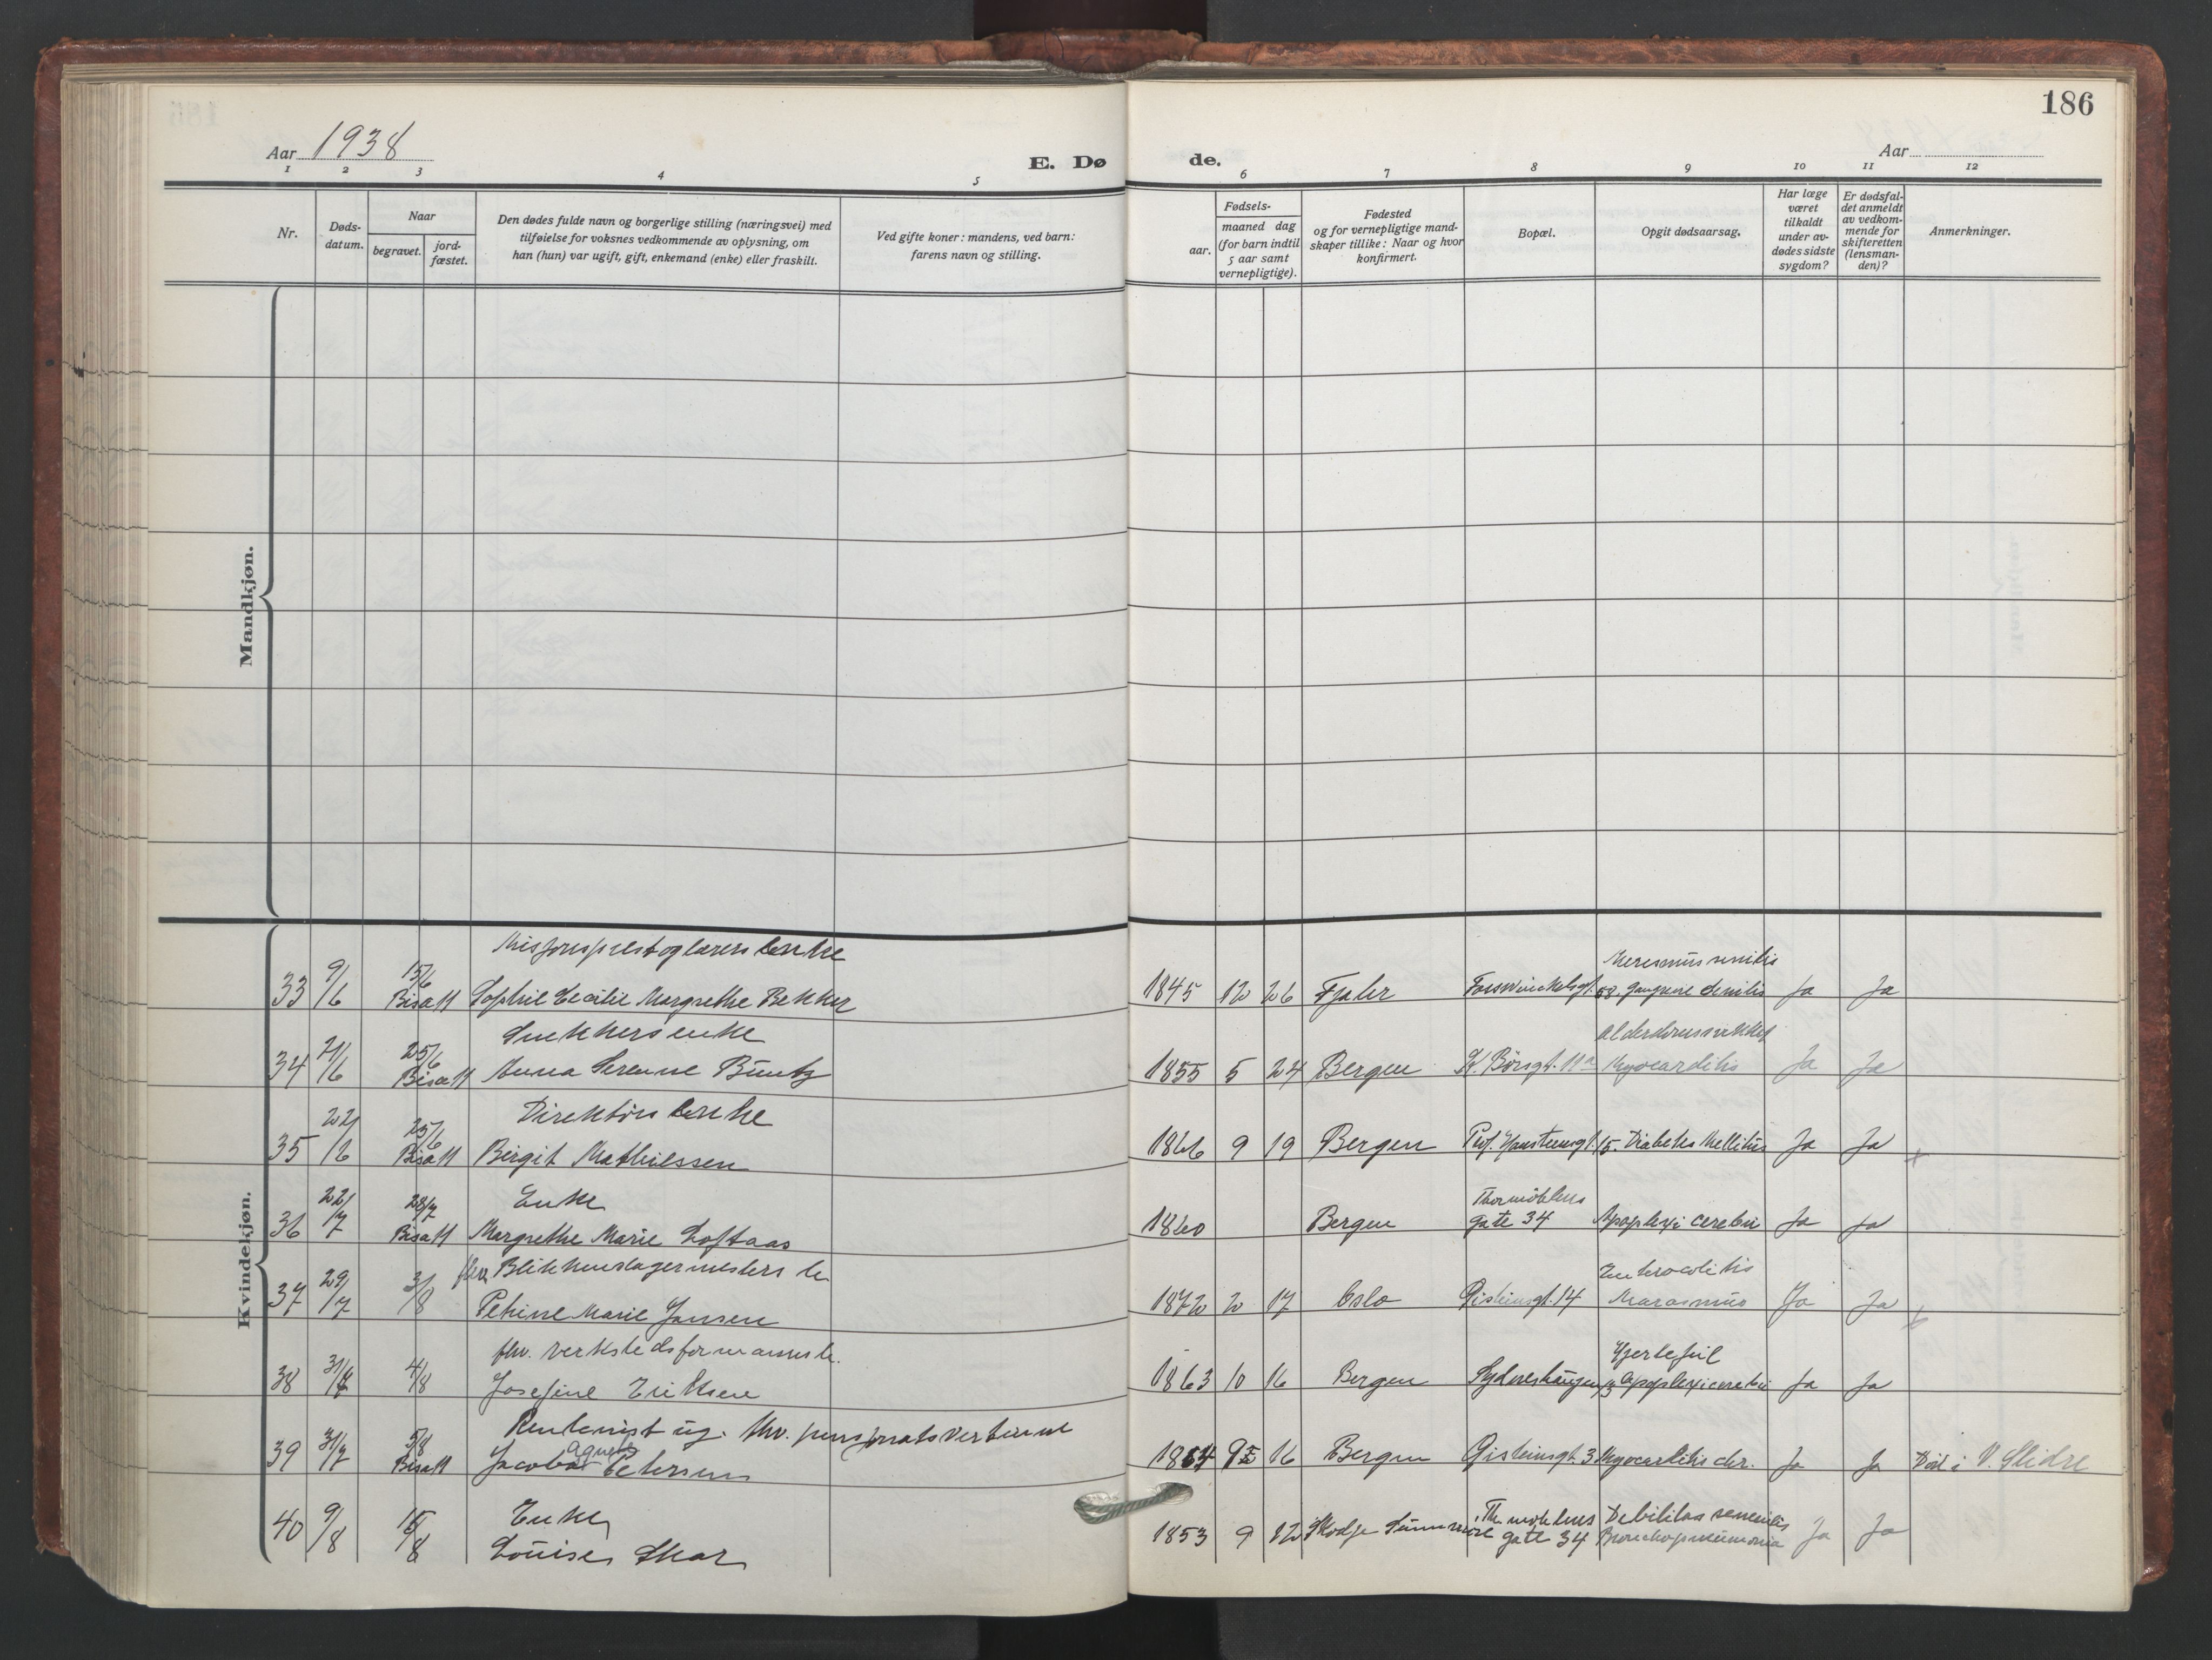 186
Aar 1938
E. Dø de.
Aar
1 2 3 4 5 6 7 8 9 10 11 12
Nr.
Døds-
datum.
Naar
begravet.
jord-
fæstet.
Den dødes fulde navn og borgerlige stilling (næringsvei) med
tilføielse for voksnes vedkommende av oplysning, om
han (hun) var ugift, gift, enkemand (enke) eller fraskilt.
Ved gifte koner: mandens, ved barn:
farens navn og stilling.
Fødsels-
aar.
maaned dag
(for barn indtil
5 aar samt
vernepligtige).
Fødested
og for vernepligtige mand-
skaper tillike: Naar og hvor
konfirmert.
Bopæl.
Opgit dødsaarsag.
Har læge
været
tilkaldt
under av-
dødes sidste
sygdom?
Er dødsfal-
det anmeldt
av vedkom-
mende for
skifteretten
(lensman-
den)?
Anmerkninger.
Mandkjøn.
Kvindekjøn.
Misjonsprest og lærers enke senilis
33 9/6 15/6 Bisatt Sophie Cecilie Margrethe Bekker 1845 12 26 Fjaler 58. senilis Ja Ja
enke
34 21/6 25/6 Bisatt Anna Serenne Büntz 1855 5 24 Bergen 11a Myocarditis Ja Ja
Direktørs enke
35 22/6 25/6 Bisatt Birgit Mathiessen 1866 9 19 Bergen Prof. Hansteensgt. 15. Diabetes Mellitus Ja Ja x
Enke Thormøhlens
36 22/7 28/7 Bisatt Margrethe Marie Loftaas 1860 Bergen gate 34 Apoplexi cerebri Ja Ja
Blikkenslagermesters Enterocolitis
37 29/7 3/8 Petrine Marie Jansen 1872 2 17 Oslo 14 Marasmus Ja Ja x
fhv. verkstedsformanns Hjertefeil
38 31/7 4/8 Josefine Eriksen 1863 10 16 Bergen Apoplexi cerebri Ja Ja
Rentenist ug. fhv. pensjonatsvertinne
39 31/7 5/8 Bisatt Jacoba Agnete Petersen 1864 9 16 Bergen 3 Myocarditis chr. Ja Ja Død i V. Slidre
Enke Thormøhlens Debilitas
40 9/8 15/8 Louise Skar 1853 9 12 Skodje Sunnmøre gate 34 Bronchopneumonia Ja Ja